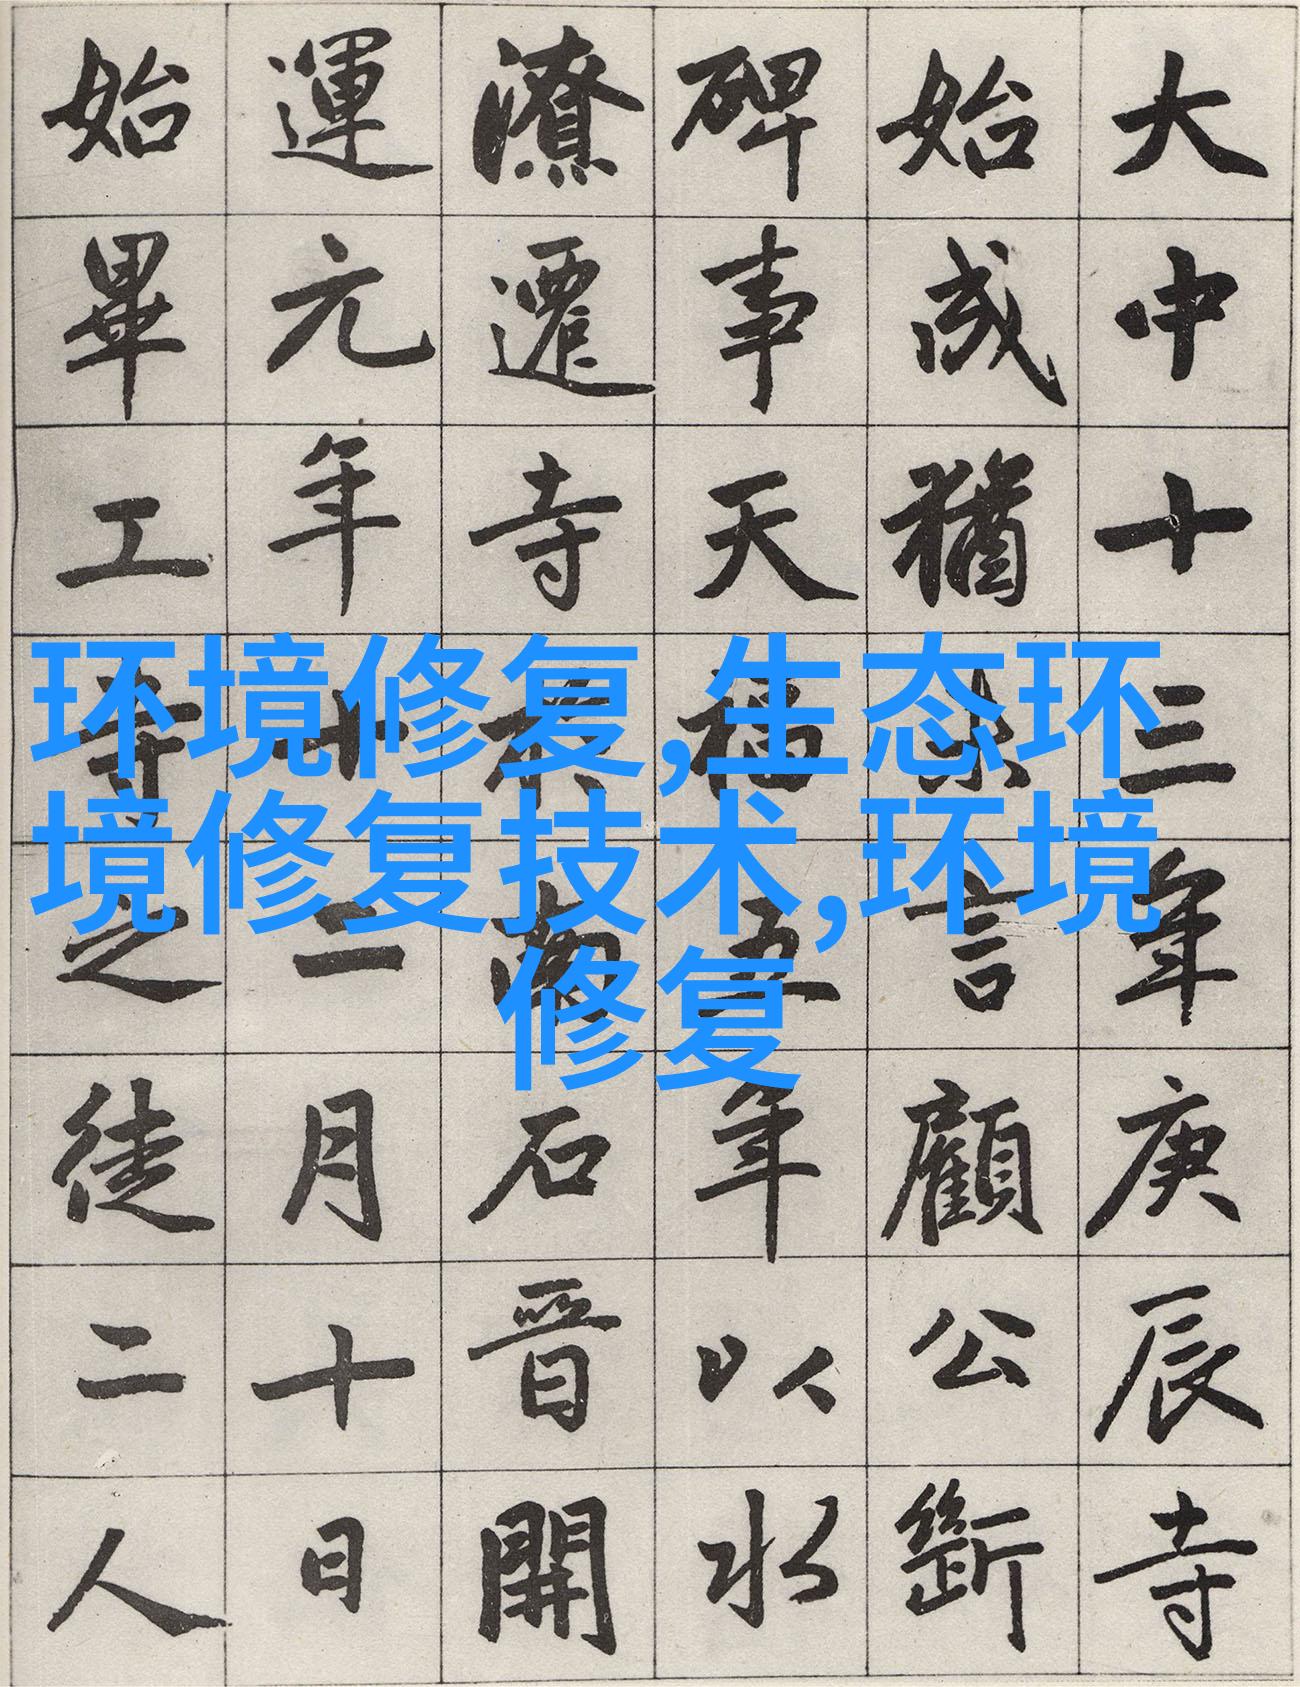 大中十三年庚辰寺
始成猶言顧公斲
碑事天福五年以水
潦遷寺南石晉開
運元年十二月十日
始畢工寺之徒二人
环境修复,生态环
境修复技术,环境
修复